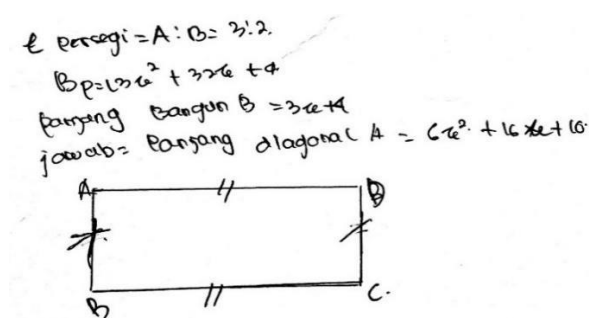 t persegi = A : B = 3 : 2
panjang bangun B = 3x + 4
jawab = panjang diagonal A = 6x² + 16x + 10
A
B
B
C.